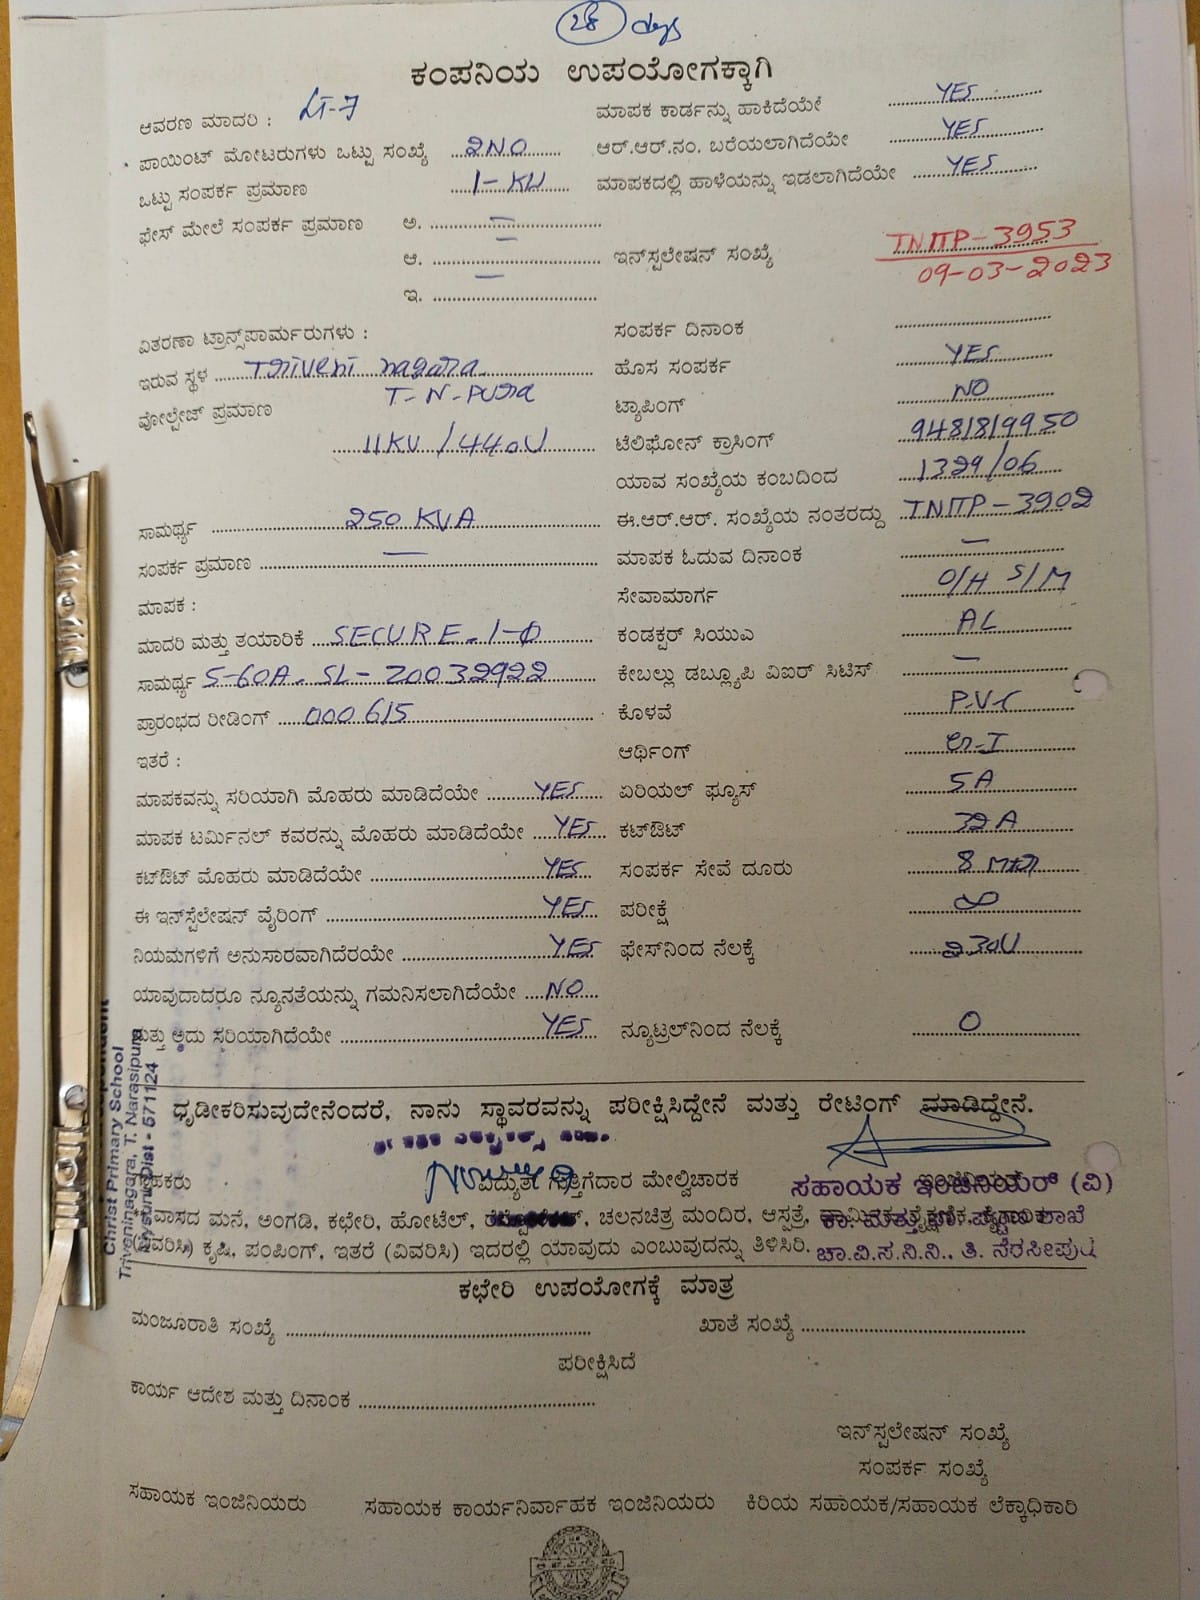 28 days
ಕಂಪನಿಯ ಉಪಯೋಗಕ್ಕಾಗಿ
ಆವರಣ ಮಾದರಿ : LT-7 ಮಾಪಕ ಕಾರ್ಡನ್ನು ಹಾಕಿದೆಯೇ YES
ಪಾಯಿಂಟ್ ಮೋಟರುಗಳು ಒಟ್ಟು ಸಂಖ್ಯೆ 2NO ಆರ್.ಆರ್.ನಂ. ಬರೆಯಲಾಗಿದೆಯೇ YES
ಒಟ್ಟು ಸಂಪರ್ಕ ಪ್ರಮಾಣ 1-KW ಮಾಪಕದಲ್ಲಿ ಹಾಳೆಯನ್ನು ಇಡಲಾಗಿದೆಯೇ YES
ಫೇಸ್ ಮೇಲೆ ಸಂಪರ್ಕ ಪ್ರಮಾಣ ಅ. —
ಆ. — ಇನ್‌ಸ್ಪಲೇಷನ್ ಸಂಖ್ಯೆ TNTP-3953
09-03-2023
ಇ. —
ವಿತರಣಾ ಟ್ರಾನ್ಸ್‌ಪಾರ್ಮರುಗಳು : ಸಂಪರ್ಕ ದಿನಾಂಕ
ಇರುವ ಸ್ಥಳ Triveni nagara ಹೊಸ ಸಂಪರ್ಕ YES
T-N-Pura
ವೋಲ್ಟೇಜ್ ಪ್ರಮಾಣ ಟ್ಯಾಪಿಂಗ್ NO
11KV/440V ಟೆಲಿಫೋನ್ ಕ್ರಾಸಿಂಗ್ 9481819950
ಯಾವ ಸಂಖ್ಯೆಯ ಕಂಬದಿಂದ 1329/06
ಸಾಮರ್ಥ್ಯ 250 KVA ಈ.ಆರ್.ಆರ್. ಸಂಖ್ಯೆಯ ನಂತರದ್ದು TNTP-3902
ಸಂಪರ್ಕ ಪ್ರಮಾಣ — ಮಾಪಕ ಓದುವ ದಿನಾಂಕ —
ಮಾಪಕ : ಸೇವಾಮಾರ್ಗ O/H S/M
ಮಾದರಿ ಮತ್ತು ತಯಾರಿಕೆ SECURE-1-Φ ಕಂಡಕ್ಟರ್ ಸಿಯುಎ AL
ಸಾಮರ್ಥ್ಯ 5-60A. SL-20032922 ಕೇಬಲ್ಲು ಡಬ್ಲ್ಯೂಪಿ ವಿಐರ್ ಸಿಟಿಸ್ —
ಪ್ರಾರಂಭದ ರೀಡಿಂಗ್ 000615 ಕೊಳವೆ P.V.C
ಇತರೆ : ಆರ್ಥಿಂಗ್ G-I
ಮಾಪಕವನ್ನು ಸರಿಯಾಗಿ ಮೊಹರು ಮಾಡಿದೆಯೇ YES ಏರಿಯಲ್ ಫ್ಯೂಸ್ 5A
ಮಾಪಕ ಟರ್ಮಿನಲ್ ಕವರನ್ನು ಮೊಹರು ಮಾಡಿದೆಯೇ YES ಕಟ್‌ಔಟ್ 32A
ಕಟ್‌ಔಟ್ ಮೊಹರು ಮಾಡಿದೆಯೇ YES ಸಂಪರ್ಕ ಸೇವೆ ದೂರು 8 Mtr
ಈ ಇನ್‌ಸ್ಟೆಲೇಷನ್ ವೈರಿಂಗ್ YES ಪರೀಕ್ಷೆ ∞
ನಿಯಮಗಳಿಗೆ ಅನುಸಾರವಾಗಿದೆರಯೇ YES ಫೇಸ್‌ನಿಂದ ನೆಲಕ್ಕೆ 230V
ಯಾವುದಾದರೂ ನ್ಯೂನತೆಯನ್ನು ಗಮನಿಸಲಾಗಿದೆಯೇ NO
ಮತ್ತು ಅದು ಸರಿಯಾಗಿದೆಯೇ YES ನ್ಯೂಟ್ರಲ್‌ನಿಂದ ನೆಲಕ್ಕೆ 0
Christ Primary School
Triveninagara, T. Narasipura
Mysuru Dist - 571124
ಧೃಡೀಕರಿಸುವುದೇನೆಂದರೆ, ನಾನು ಸ್ಥಾವರವನ್ನು ಪರೀಕ್ಷಿಸಿದ್ದೇನೆ ಮತ್ತು ರೇಟಿಂಗ್ ಮಾಡಿದ್ದೇನೆ.
ಗ್ರಾಹಕರು ವಿದ್ಯುತ್ ಗುತ್ತಿಗೆದಾರ ಮೇಲ್ವಿಚಾರಕ ಸಹಾಯಕ ಇಂಜಿನಿಯರ್ (ವಿ)
ವಾಸದ ಮನೆ, ಅಂಗಡಿ, ಕಛೇರಿ, ಹೋಟೆಲ್, ಚಲನಚಿತ್ರ ಮಂದಿರ, ಆಸ್ಪತ್ರೆ, ಕಾ. ಮತ್ತು ಶಾಖೆ
(ವಿವರಿಸಿ) ಕೃಷಿ, ಪಂಪಿಂಗ್, ಇತರೆ (ವಿವರಿಸಿ) ಇದರಲ್ಲಿ ಯಾವುದು ಎಂಬುವುದನ್ನು ತಿಳಿಸಿರಿ. ಚಾ.ವಿ.ಸ.ನಿ.ನಿ., ತಿ. ನರಸೀಪುರ
ಕಛೇರಿ ಉಪಯೋಗಕ್ಕೆ ಮಾತ್ರ
ಮಂಜೂರಾತಿ ಸಂಖ್ಯೆ ಖಾತೆ ಸಂಖ್ಯೆ
ಪರೀಕ್ಷಿಸಿದೆ
ಕಾರ್ಯ ಆದೇಶ ಮತ್ತು ದಿನಾಂಕ
ಇನ್‌ಸ್ಪಲೇಷನ್ ಸಂಖ್ಯೆ
ಸಂಪರ್ಕ ಸಂಖ್ಯೆ
ಸಹಾಯಕ ಇಂಜಿನಿಯರು ಸಹಾಯಕ ಕಾರ್ಯನಿರ್ವಾಹಕ ಇಂಜಿನಿಯರು ಕಿರಿಯ ಸಹಾಯಕ/ಸಹಾಯಕ ಲೆಕ್ಕಾಧಿಕಾರಿ